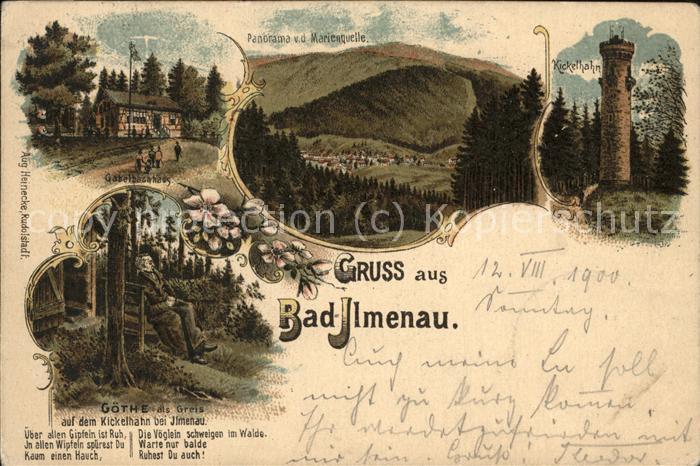 Panorama v.d. Marienquelle.
Kickelhahn
Gabelbachhaus
Aug. Heinecke, Rudolstadt.
copyright protection copy Schutz Kopierschutz
GRUSS aus
Bad-Jlmenau.
12. VIII. 1900.
Sonntag.
Auch meine Lu soll
nicht zu kurz kommen
Ihr werdet zufrieden mit
mir sein. Gruß! Theodor.
GÖTHE als Greis
auf dem Kickelhahn bei Jlmenau.
Über allen Gipfeln ist Ruh,
Jn allen Wipfeln spürest Du
Kaum einen Hauch,
Die Vöglein schweigen im Walde.
Warte nur balde
Ruhest Du auch!